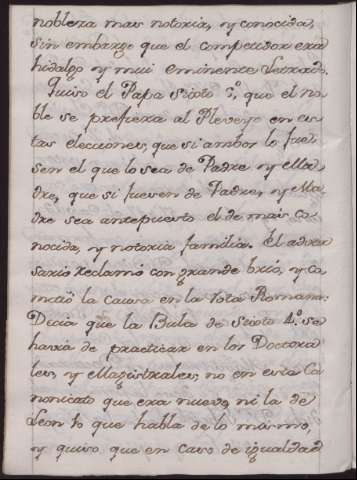 nobleza mas notoria, y conocida,
sin embargo que el competidor era
hidalgo y mui eminente Letrado.
Quiso el Papa Sixto 5º. que el no-
ble se prefiera al Pleveyo en es-
tas elecciones, que si ambos lo fue-
sen el que lo sea de Padre y Ma-
dre, que si fuesen de Padre, y Ma-
dre sea antepuesto el de mas co-
nocida, y notoria familia. El adver-
sario reclamó con grande brio, y co-
metió la causa en la Rota Romana:
Decia que la Bula de Sixto 4.º se
havia de practicar en los Doctora-
les, y Magistrales, no en esta Ca-
nonicato que era nuevo, ni la de
Leon 10 que habla de lo mismo,
y quiso que en caso de igualdad